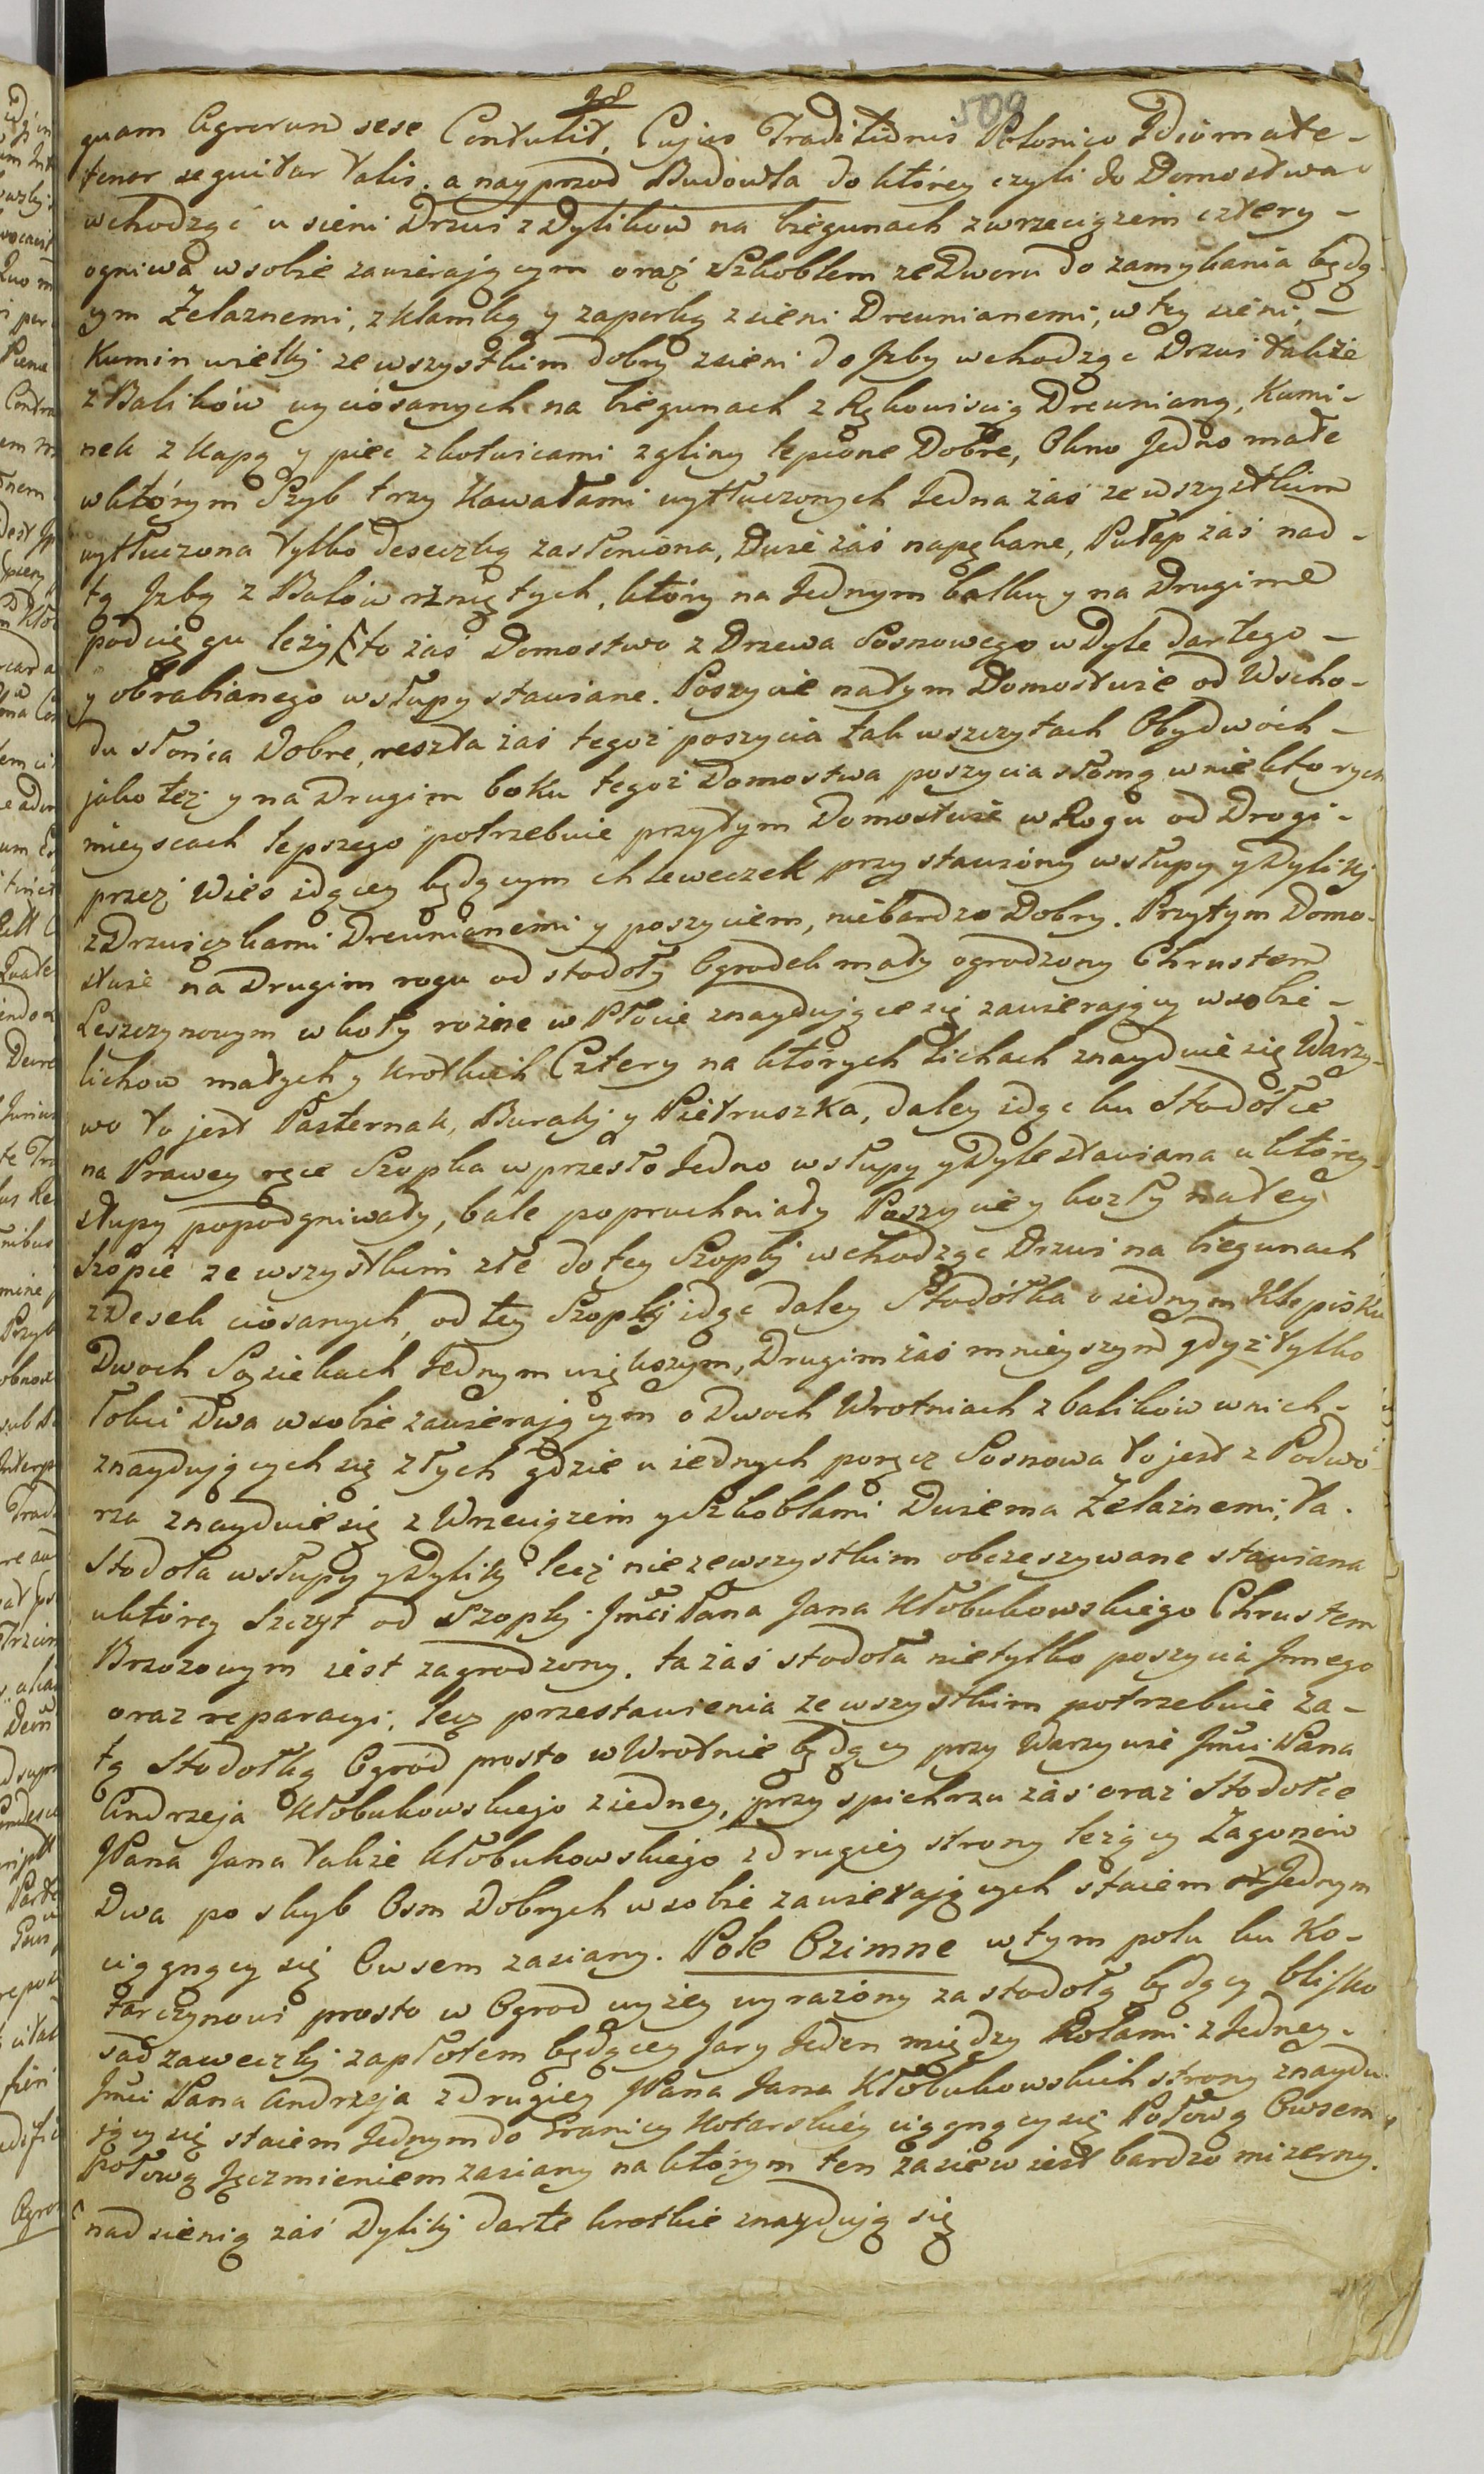 98
509
quam Agrorum sese Contulit, Cujus Traditionis Polonico Idiomate-
tenor sequitur talis. a nayprzod Budowla do którey czyli do Domostwa
wchodząc u sieni Drzwi z Dylików na biegunach z wrzeciązem cztery-
ogniwa w sobie zawierającym oraz Szkoblem ze Dworu do zamykania będą
cym Żelaznemi, z Klamką y zaporką z sieni Drewnianemi, w tey sieni,-
Kumin wielki ze wszystkim dobry z sieni do Jzby wchodząc Drzwi także
z Balików wyciosanych na biegunach z Rękowiscią Drewnianą, Kumi-
nek z Kapą y piec z kotwicami z gliny lepione Dobre, Okno Jedno małe
w którym Szyb trzy Kawałami wytłuczonych Jedna zaś ze wszystkim
wytłuczona tylko deseczką zasłoniona, Dwie zaś napękane, Pułap zaś nad-
tą Jzbą z Balów rzniętych, który na Jednym balku y na Drugim
podciągu leży to zaś Domostwo z Drzewa Sosnowego w Dyle dartego-
y obrabianego w słupy stawiane. Poszycie na tym Domostwie od Wscho-
du słońca Dobre, reszta zaś tegoż poszycia tak w szczytach Obydwóch-
jako też y na Drugim boku tegoż Domostwa poszycia słomą w niektorych
mieyscach lepszego potrzebuie przy tym Domostwie w Rogu od Drogi-
przez Wieś idącey będącym chleweczek przystawiony w słupy y Dyliki
z Drzwiczkami Drewnianemi y poszyciem, nie bardzo Dobry. Przy tym Domo-
stwie na Drugim rogu od stodoły Ogrodek mały ogrodzony Chrustem
Leszczynowym w koły rożne w Płocie znayduiące się zawierający w sobie-
lichow małych y Krotkich Cztery na których Lichach znayduie się Warzy-
wo to jest Pasternak, Buraki y Pietruszka, daley idąc ku Stodółce
na Prawey ręce Szopka w przesło Jedno w słupy y Dyle stawiana u którey-
słupy popodgniwały, bale popruchniały Poszycie y kozły na tey
Szopie ze wszystkim złe do tey Szopki wchodząc Drzwi na biegunach
z Desek ciosanych, od tey Szopki idąc daley Stodółka o iednym Klepisku
Dwoch Sąsiekach Jednym większym, Drugim zaś mnieyszym gdyż tylko
Łokci Dwa w sobie zawierającym o Dwoch Wrotniach z balików w nich-
znayduiących się złych gdzie u iednych poręcz Sosnowa to jest z Podwo-
rza znayduie się z Wrzeciązem y Szkoblami Dwiema Żelaznemi, ta.
Stodoła w słupy y Dyliki lecz nie zewszystkim obrzeszywane stawiana
u którey Szczyt od Szopki Jmći Pana Jana Kłobukowskiego Chrustem
Brzozowym iest zagrodzony, ta zaś stodoła nie tylko poszycia Jnnego
oraz reparacyi, lecz przestawienia ze wszystkim potrzebuie za-
tą Stodołką Ogród prosto w Wrotnie będący przy Warzywie Jmći Pana
Andrzeja Kłobukowskiejo z iedney, przy spichrzu zaś oraz Stodołce
JPana Jana także Kłobukowskiejo z drugiey strony leżący Zagonów
Dwa po skyb Osm Dobrych w sobie zawierających staiem Jednym
ciągnący się Owsem zasiany. Pole Ozimne w tym polu ku Ko-
tarczynowi prosto w Ogrod wyżey wyrażony za stodołą będący blisko
sadzaweczki za płotem będącey Jary Jeden między Rolami z Jedney-
Jmći Pana Andrzeja z drugiey JPana Jana Kłobukowskich strony znaydu-
iący się staiem Jednym do Granicy Kotarskiey ciągnący się Połową Owsem
Połową Jęczmieniem zasiany na którym ten zasiew iest bardzo mizerny.
nad sienią zaś Dyliki darte krotkie znayduią się